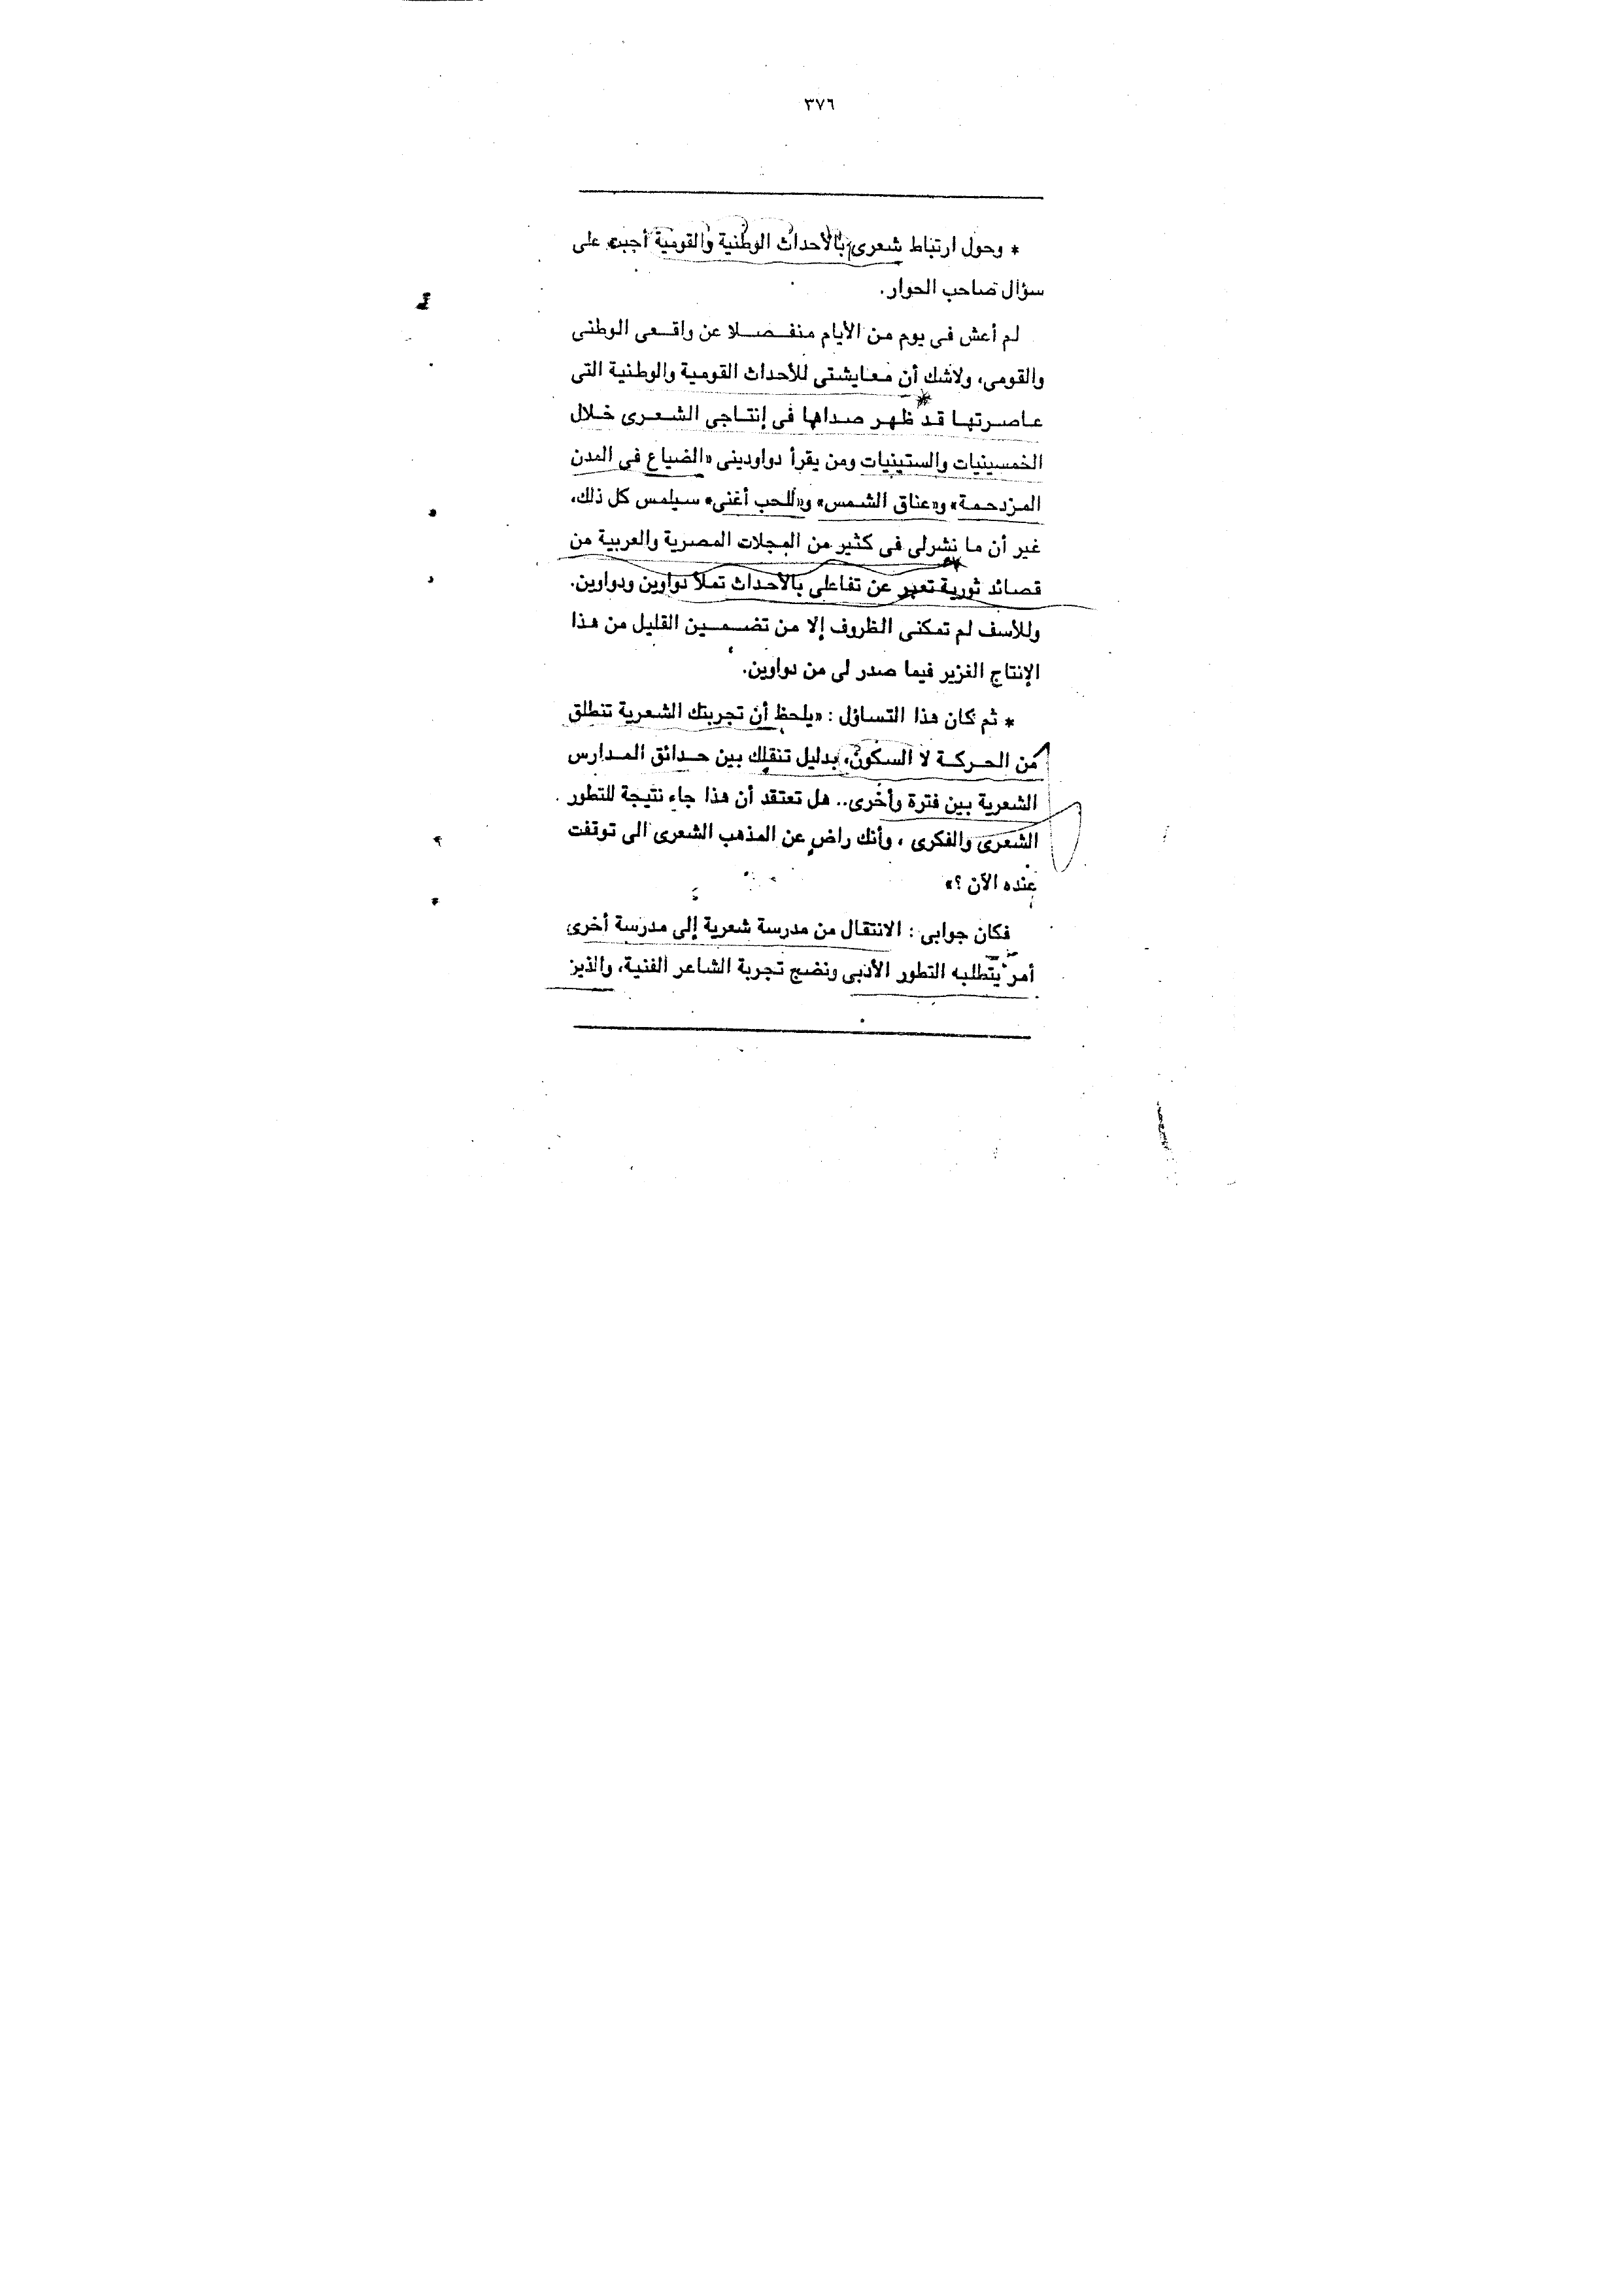 ٣٧٦
* وحول ارتباط شعرى بالأحداث الوطنية والقومية أجبت على
سؤال صاحب الحوار.
لم أعش فى يوم من الأيام منفصلا عن واقعى الوطنى
والقومى، ولاشك أن معايشتى للأحداث القومية والوطنية التى
عاصرتها قد ظهر صداها فى إنتاجى الشعرى خلال
الخمسينيات والستينيات ومن يقرأ دواودينى «الضياع فى المدن
المزدحمة» و«عناق الشمس» و«للحب أغنى» سيلمس كل ذلك،
غير أن ما نشرلى فى كثير من المجلات المصرية والعربية من
قصائد ثورية تعبر عن تفاعلى بالأحداث تملأ دواوين ودواوين.
وللأسف لم تمكنى الظروف إلا من تضمين القليل من هذا
الإنتاج الغزير فيما صدر لى من دواوين.
* ثم كان هذا التساؤل : «يلحظ أن تجربتك الشعرية تنطلق
من الحركة لا السكون، بدليل تنقلك بين حدائق المدارس
الشعرية بين فترة وأخرى.. هل تعتقد أن هذا جاء نتيجة للتطور
الشعرى والفكرى ، وأنك راض عن المذهب الشعرى الى توقفت
عنده الآن ؟»
فكان جوابى : الانتقال من مدرسة شعرية إلى مدرسة أخرى
أمر يتطلبه التطور الأدبى ونضج تجربة الشاعر الفنية، والذين